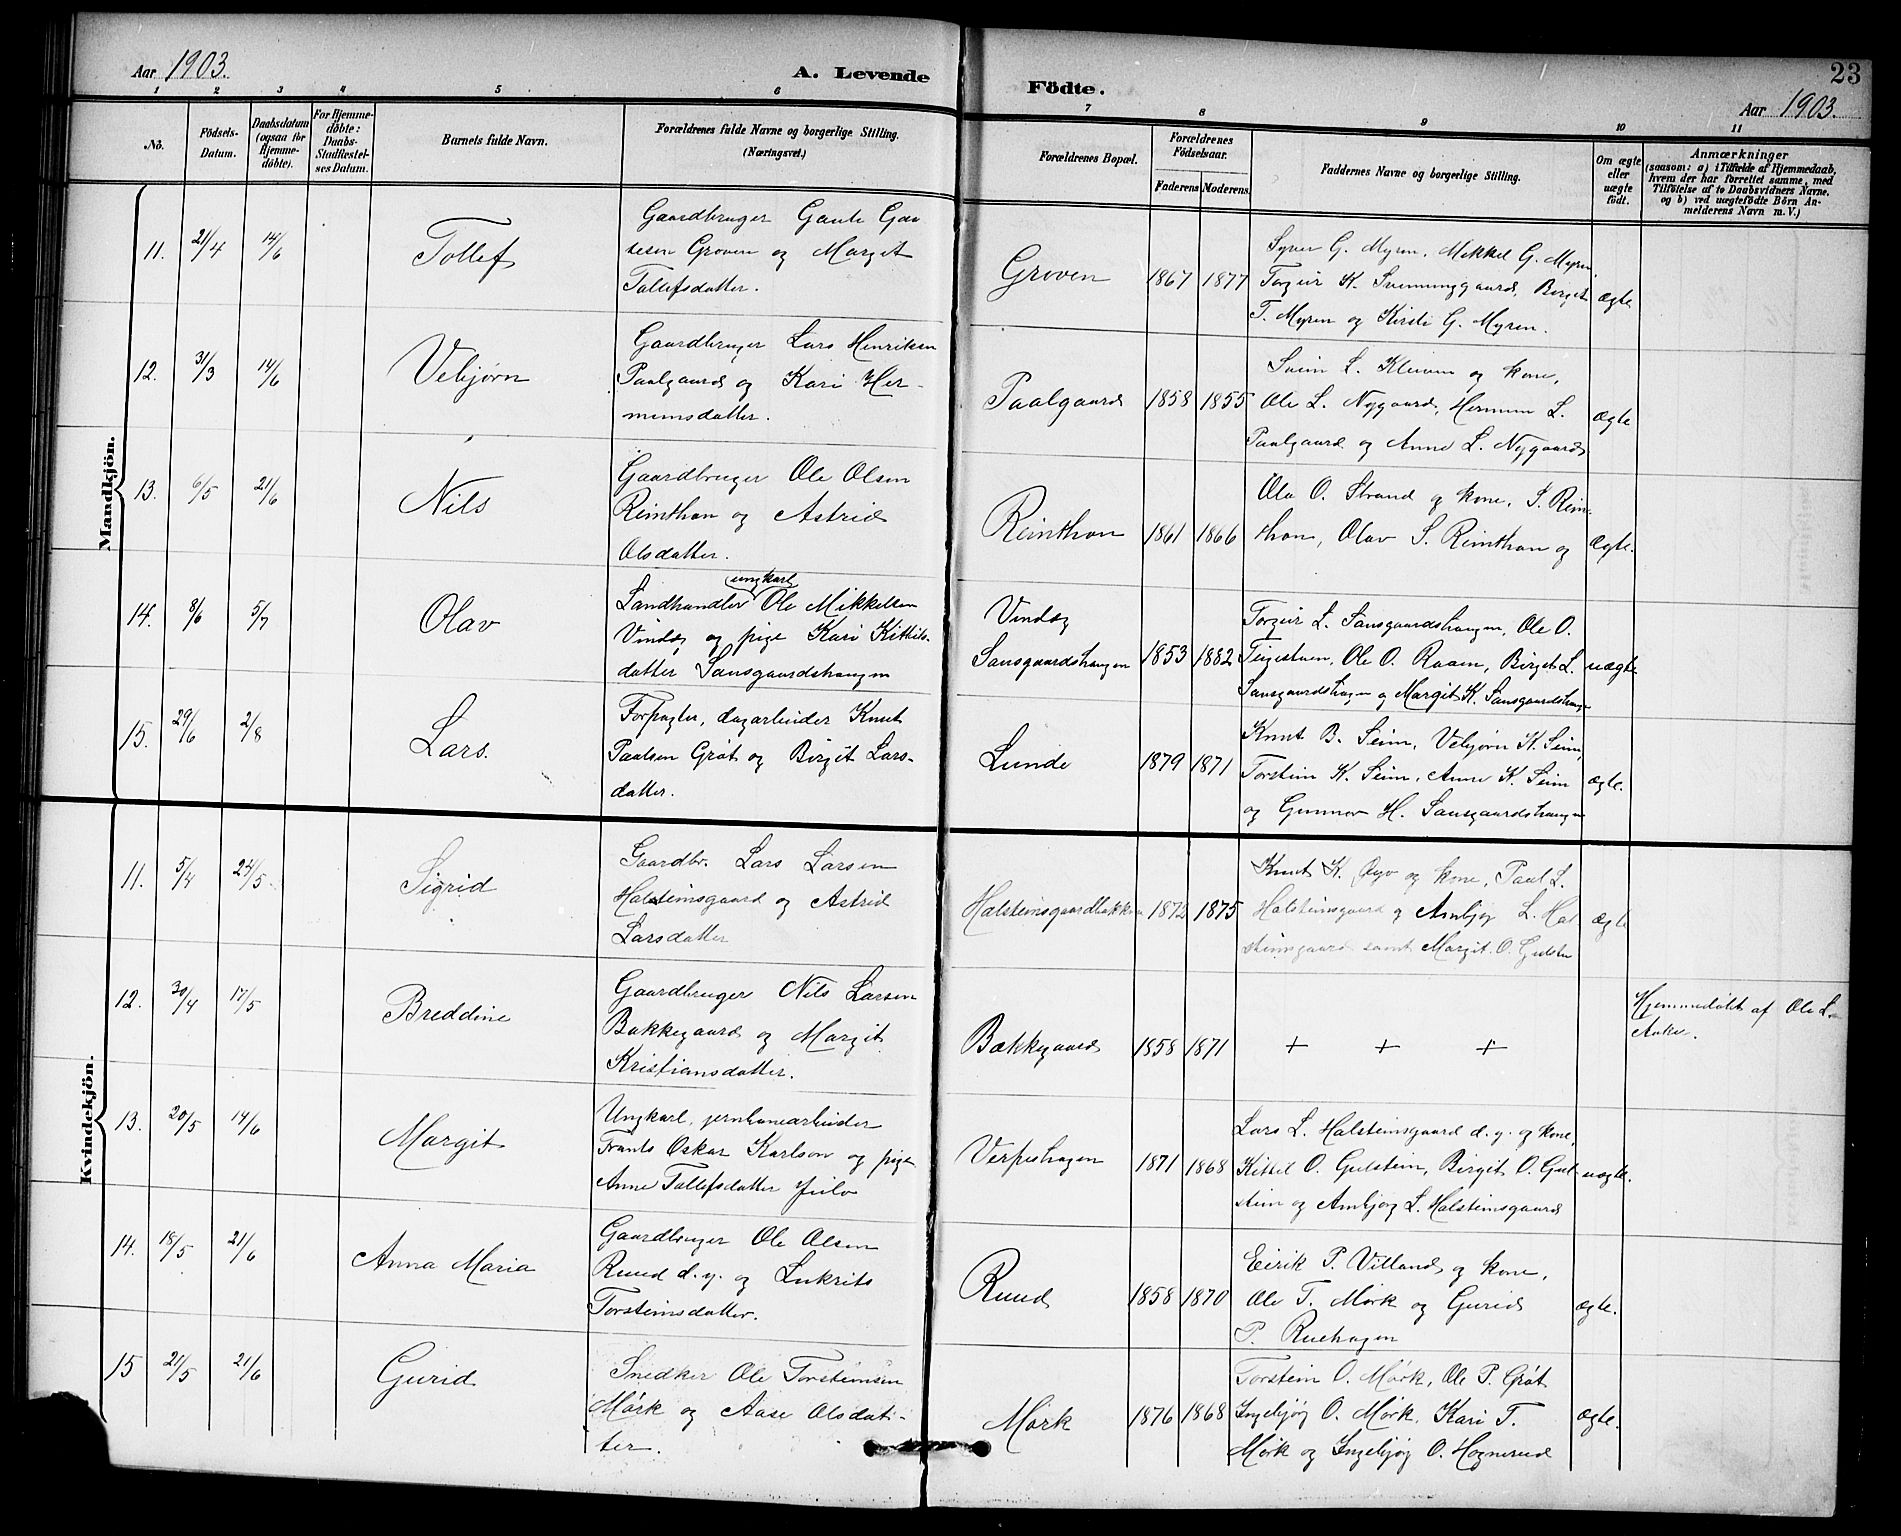 Aar 1903.
A. Levende
Födte.
23
Aar 1903.
1 2 3 4 5 6 7 8 9 10 11
No.
Födsels-
Datum.
Daabsdatum
(ogsaa for
Hjemme-
døbte).
For Hjemme-
døbte:
Daabs-
Stadfæstel-
ses Datum.
Barnets fulde Navn.
Forældrenes fulde Navne og borgerlige Stilling.
(Næringsvei.)
Forældrenes Bopæl.
Forældrenes
Födselsaar.
Faderens Moderens
Faddernes Navne og borgerlige Stilling.
Om ægte
eller
uægte
födt.
Anmærkninger
(saasom: a) i Tilfælde af Hjemmedaab,
hvem der har forrettet samme, med
Tilföielse af to Daabsvidners Navne.
og b) ved uægtefødte Börn An-
melderens Navn m. V.)
Mandkjön.
11. 21/4 14/6
Tollef
Gaardbruger Gaute Gau
tesen Groven og Marget
Tollefsdatter.
Groven
1867 1877
Syver G. Myren, Mikkel G. Myren,
Torgeir K. Svenninggaard, Birget
T. Myren og Kirsti G. Myren.
ægte
12. 31/3 14/6
Vebjørn
Gaardbruger Lars Henriksen
Paalgaard og Kari Her-
memsdatter.
Paalgaard
1858 1855
Svein L. Kleiven og kone,
Ole L. Nygaard, Hermem L.
Paalgaard og Anne L. Nygaard
ægte
13. 6/5 21/6
Nils
Gaardbruger Ole Olsen
Reinthon og Astrid
Olsdatter.
Reinthon
1861 1866
Ola O. Strand og kone, S. Rein-
thon, Olav S. Reinthon og
ægte.
14. 8/6 5/7
Olav
ungkarl
Landhandler Ole Mikkelsen
Vindeg og pige Kari Kittils-
datter Sansgaardshaugen
Vindeg
Sansgaardshaugen
1853 1882
Torgeir L. Sansgaardshaugen, Ole O.
Teigestuen, Ole O. Raaen, Birget L.
Sansgaardshagen og Margit K. Sansgaardshaug
uægte.
15. 29/6 2/8
Lars.
Forpagter, dagarbeider Knut
Paalsen Grøt og Birgit Lars-
datter.
Lunde
1879 1871
Knut B. Seim, Vebjørn K. Seim,
Torstein K. Seim, Anne K. Seim
og Gunnor H. Sansgaardshaugen
ægte.
Kvindekjön.
11. 5/4 24/5
Sigrid
Gaardbr. Lars Larsen
Halsteinsgaard og Astrid
Larsdatter
Halsteinsgaardbakken
1872 1875
Knut K. Øyo og kone, Paul L.
Halsteinsgaard og Ambjør L. Hal
steinsgaard samt Margit O. Gulstein
ægte
12. 30/4 17/5
Breddine
Gaardbruger Nils Larsen
Bakkegaard og Margit
Kristiansdatter.
Bakkegaard
1858 1871
+ + +
Hjemmedøbt af Ole L.
Anker.
13. 20/5 14/6
Margit
Ungkarl, jernbanearbeider
Frants Oskar Karlson og pige
Anne Tollefsdatter Juilo
Verpeshagen
1871 1868
Lars L. Halsteinsgaard d.y. og kone,
Kittel O. Gulstein, Birgit O. Gul
stein og Ambjørg L. Halsteinsgaard
uægte.
14. 18/5 21/6
Anna Maria
Gaardbruger Ole Olsen
Ruud d. y. og Lukrits
Torsteinsdatter.
Ruud
1858 1870
Eirik P. Villand og kone,
Ole T. Mørk og Gurid
P. Ruehagen
ægte.
15 21/5 21/6
Gurid
Snedker Ole Torsteinsen
Mørk og Aase Olsdat-
ter.
Mørk
1876 1868
Torstein O. Mørk, Ole P. Grøt
Ingebjørg O. Mørk, Kari T.
Mørk og Ingebjøg O. Hognerud
ægte.